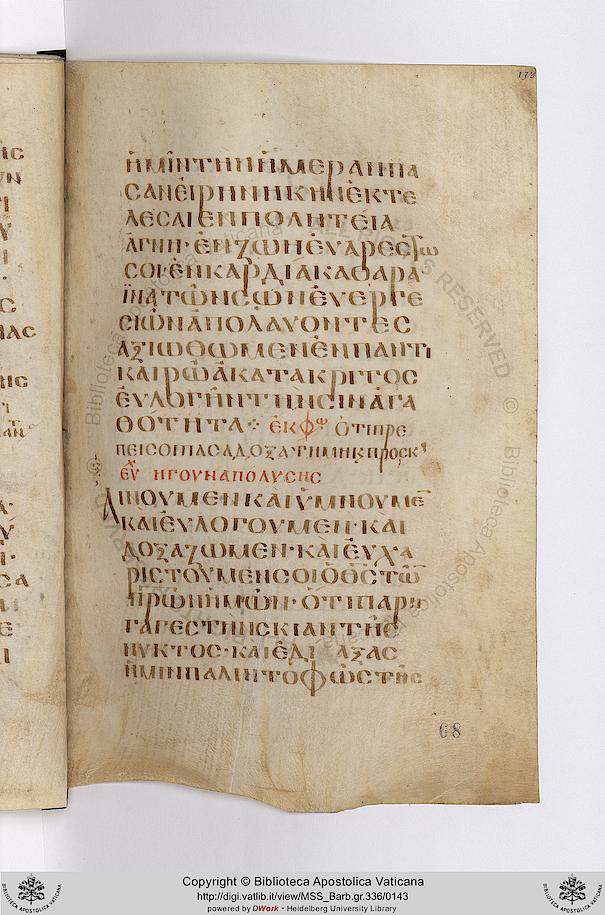 132
ἡμῖν τὴν ἡμέραν πᾶ
σαν εἰρηνικὴν ἐκτε
λέσαι ἐν πολητεία
ἁγνῆ· ἐν ζωῆ εὐαρέστω
σοι· ἐν καρδία καθαρᾶ
ἵνα τῶν σῶν εὐεργε
σιῶν ἀπολαύοντες
ἀξιωθῶμεν ἐν παντὶ
καιρῶ ἀκατακρίτος
εὐλογῆν τὴν σὴν ἀγα
θότητα ⁘ ἐκφ ὅτι πρέ
πει σοι πᾶσα δόξα τιμὴ κ προσκ
εὐχ ἤγουν ἀπολύσης
Αἰνοῦμεν καὶ ὑμνοῦμε
καὶ εὐλογοῦμεν· καὶ
δοξάζωμεν· καὶ εὐχα
ριστοῦμεν σοι ὁ θς τῶ
πρων ἡμῶν· ὅτι παρή
γαγες τὴν σκιὰν τῆς
νυκτός· καὶ ἔδιξας
ἡμῖν πάλιν τὸ φῶς τῆς
68
Copyright © Biblioteca Apostolica Vaticana
http://digi.vatlib.it/view/MSS_Barb.gr.336/0143
powered by DWork - Heidelberg University Library